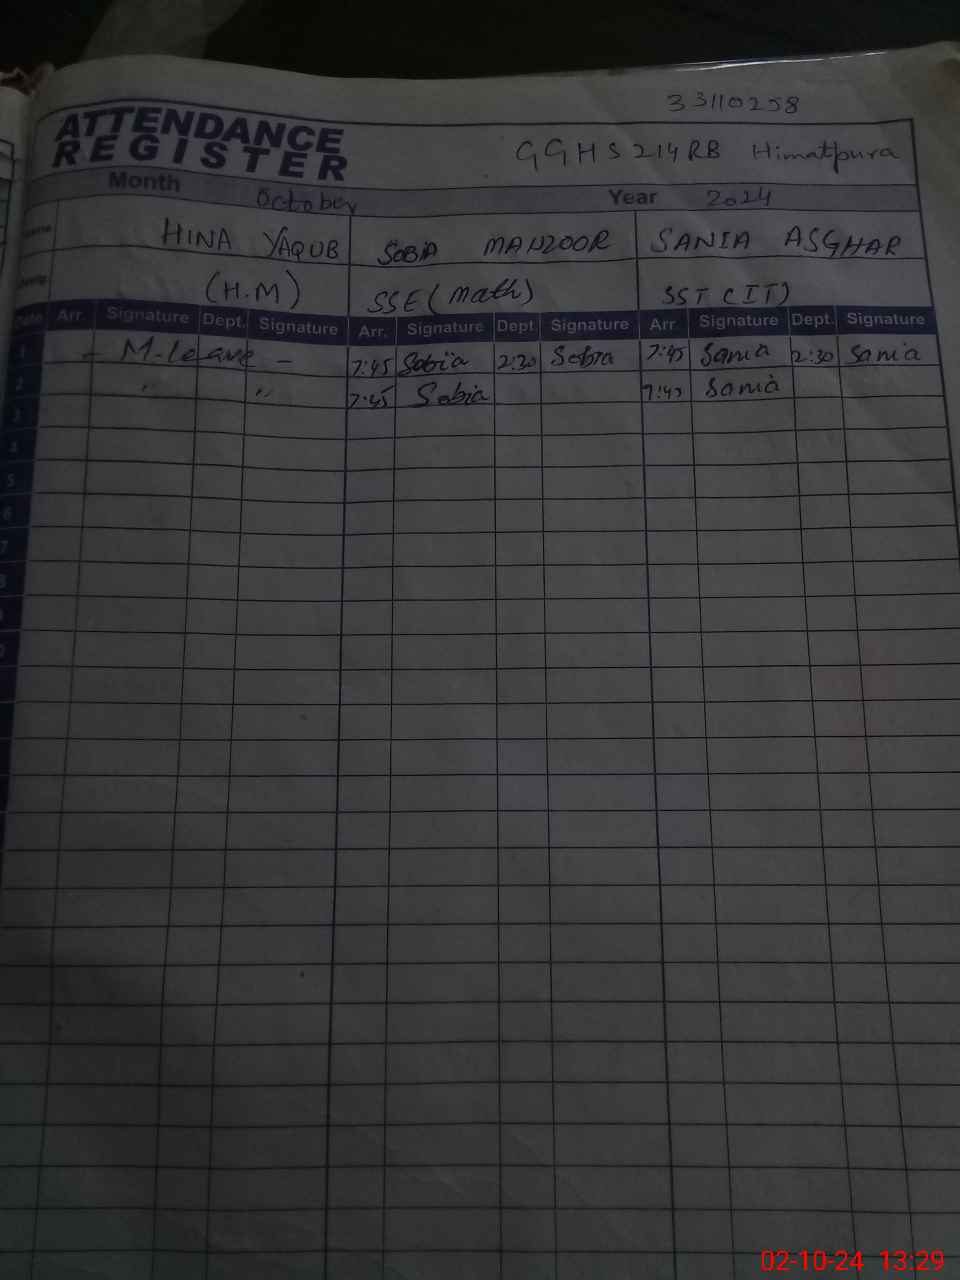 33110258
ATTENDANCE
REGISTER
GGHS 214 RB Himatpura
Month October Year 2024
HINA YAQUB SOBIA MANZOOR SANIA ASGHAR
(H.M) SSE (Math) SST (IT)
Date Arr. Signature Dept. Signature Arr. Signature Dept. Signature Arr. Signature Dept. Signature
1 - M-leave - 7:45 Sobia 2:30 Sobia 7:45 Sania 2:30 Sania
2 " " 7:45 Sobia 7:45 Sania
3
4
5
6
7
8
9
02-10-24 13:29